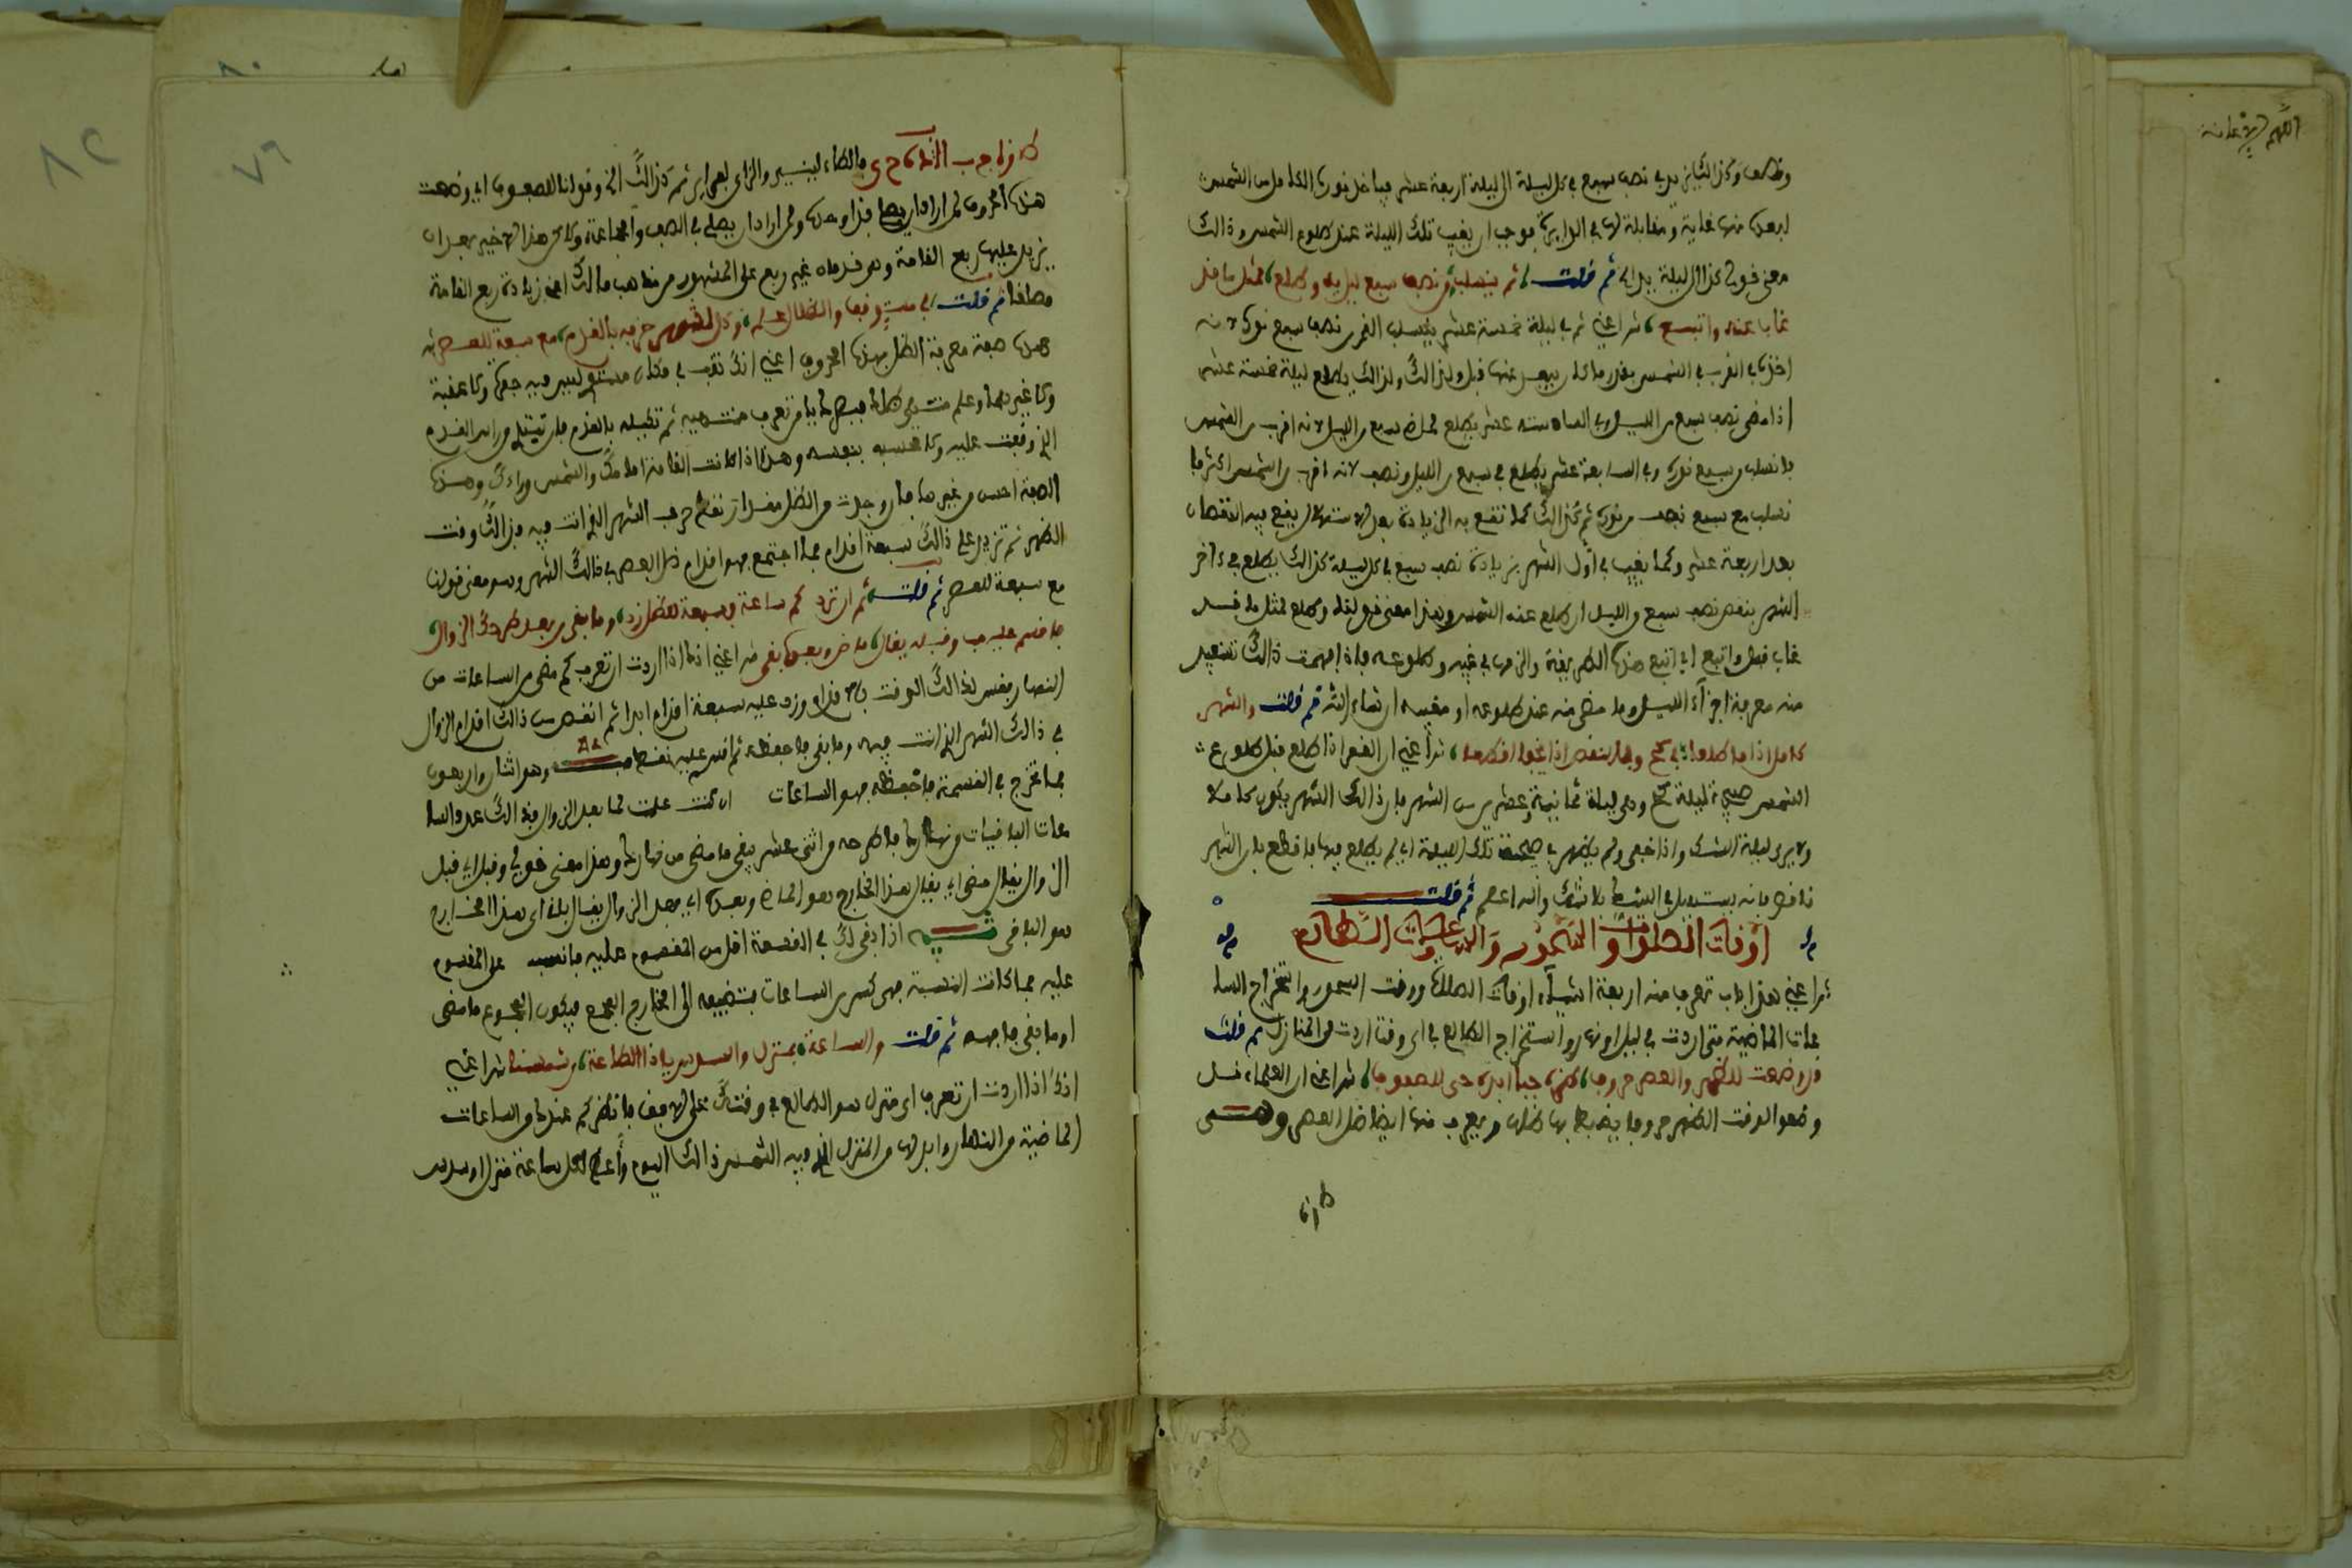 ونصف وكذالك يزيد نصف سبع في كل ليلة الى ليلة اربعة عشر فياخذ نورها الكامل من الشمس
لبعدها منها غاية ومقابلة لها في الدايرة فوجب ان يغيب تلك الليلة عند طلوع الشمس وذالك
معنى قولي كذا الى ليلة بدر ثم قلت ثم ينسلب نصف سبع ليليه وطلع لمثل ما قد
غاب عنه واتبع ش اعني ثم في ليلة خمسة عشر ينسلب القمر نصف سبع نوره لانه
اخذ في القرب من الشمس بقدر ما كان يبعد عنها قبل ولذالك يطلع ليلة خمسة عشر
اذا مضى نصف سبع من الليل وفي السادسة عشر يطلع لمضي سبع من الليل لانه اقرب من الشمس
فانسلب سبع نوره وفي السابعة عشر يطلع في سبع من الليل ونصف لانه اقرب من الشمس اكثر فا
نسلب مع سبع نصف من نوره ثم كذالك كما تقع به الزيادة بعد الاستهلال يقع فيه النقصان
بعد اربعة عشر وكما يغيب في اول الشهر بزيادة نصف سبع في كل ليلة كذالك يطلع في ءاخر
الشهر بنقص نصف سبع من الليل ان طلع عند الشمس وهذا معنى قولنا وطلع لمثل ما قد
غاب قبل واتبع اي اتبع هذه الطريقة والزمها في مغيبه وطلوعه فاذا فهمت ذالك تستفيد
منه معرفة اجزاء الليل وما مضى منه عند طلوعه او مغيبه ان شاء الله ثم قلت والشهر
كامل اذا ما طلعا في كح وناقص اذا تجد افطعا ش اعني ان القمر اذا طلع قبل طلوع
الشمس صبيحة ليلة كح وهي ليلة ثمانية وعشرين من الشهر فان ذالك الشهر يكون كاملا
ولا يرى ليلة الشك واذا خفي ولم يظهر في صبيحة تلك الليلة اي لم يطلع فيها فاقطع بان الشهر
ناقص فانه يستهل في الشك بلا شك والله اعلم ثم قلت
اوقات الصلوات والسحور والساعات والطالع
ش اعني هذا باب تعرف منه اربعة اشياء اوقات الصلاة ووقت السحور واستخراج السا
عات الماضية متى اردت في ليل او نهار واستخراج الطالع في اي وقت اردت من المنازل ثم قلت
قد وضعت للظهر والعصر حروفا طزه جبا ابده حى للصفوفا ش اعني ان العلماء قد
وضعوا لوقت الظهر حروفا يضبط بها ظله ويعرف منها ايضا ظل العصر وهي
طزه
طزه جب ابده حى فالطاء لينير والزاي لفبراير ثم كذالك الخ وقولنا للصفوف اي وضعت
هذه الحروف لمن اراد ان يصلي فذا وحده ولمن اراد ان يصلي في الصف والجماعة ولكن هذا الاخير بعد ان
يزيد عليها ربع القامة وهو قدمان غير ربع على المشهور من مذهب مالك اعني زيادة ربع القامة
مطلقا ثم قلت في مستو قف والظل علم وكل شهر حرفه بالقدم مع سبعة للعصر ش
هذه صفة معرفة الظل بهذه الحروف اعني انك تقف في مكان مستو ليس فيه حفرة ولا عقبة
ولا غيرهما وعلم منتهى ظلك فيصح ما به تعرف منتهيه ثم تكيله بالقدم فان تبتدئ من اثر القدم
الذي وقفت عليه ولا تحسبه بنفسه وهذا اذا كانت القامة امامك والشمس وراءك وهذه
الصفة احسن من غيرها فان وجدت من الظل مقدار نقط حرف الشهر الذي انت فيه فذالك وقت
الظهر ثم تزيد على ذالك سبعة اقدام فما اجتمع فهو اقدام ظل العصر في ذالك الشهر وهو معنى قولنا
مع سبعة للعصر ثم قلت ثم ان ترد كم ساعة فسبعة للظل زد وما بقي من بعد طرحك الزوال
فاقسم عليه مب وقبله يقال ماض وبعده بقي ش اعني انك اذا اردت ان تعرف كم مضى من الساعات من
النهار فقس لذالك الوقت بالاقدام وزد عليه سبعة اقدام ابدا ثم انقص من ذالك اقدام الزوال
في ذالك الشهر الذي انت فيه وما بقي فاحفظه ثم اقسم عليه نقط مب ٤٢ وهو اثنان واربعون
فما تخرج في القسمة فاحفظه فهو الساعات ان كنت عملت لما بعد الزوال فذالك عدد السا
عات الباقيات من نهارك فاطرحه من اثنى عشر يبقى ما مضى من نهارك وهذا معنى قولي وقبله اي قبل
الزوال يقال مضى اي يقال لهذا الخارج هو الماضي وبعده اي بعد الزوال يقال باق اي هذا الخارج
هو الباقي تنبيه اذا بقي لك في القسمة اقل من المقسوم عليه فانسبه على المقسوم
عليه فما كانت النسبة فهي كسر من الساعات فتضيفه الى الخارج الصحيح فيكون المجموع ما مضى
او ما بقي فافهم ثم قلت والساعة بمنزل والسدس يا ذا الطاعة من شمسنا ش اعني
انك اذا اردت ان تعرف اي منزل هو الطالع في وقتك على الافق فانظر كم عندك من الساعات
الماضية من النهار وابدا لها من المنزل الذي فيه الشمس ذالك اليوم واعط لكل ساعة منزل وسدس
٧٩
٨٢
٨٠